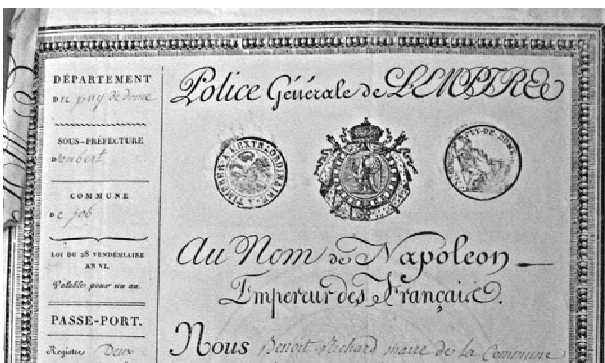 DÉPARTEMENT
Du puy de dome
SOUS-PRÉFECTURE
D'ambert
COMMUNE
De job
LOI DU 28 VENDÉMIAIRE
AN VI.
Valable pour un an.
PASSE-PORT.
Registre Deux
Police Générale de L'EMPIRE
Au Nom de Napoleon
Empereur des Français.
Nous Benoit Richard maire de la Commune